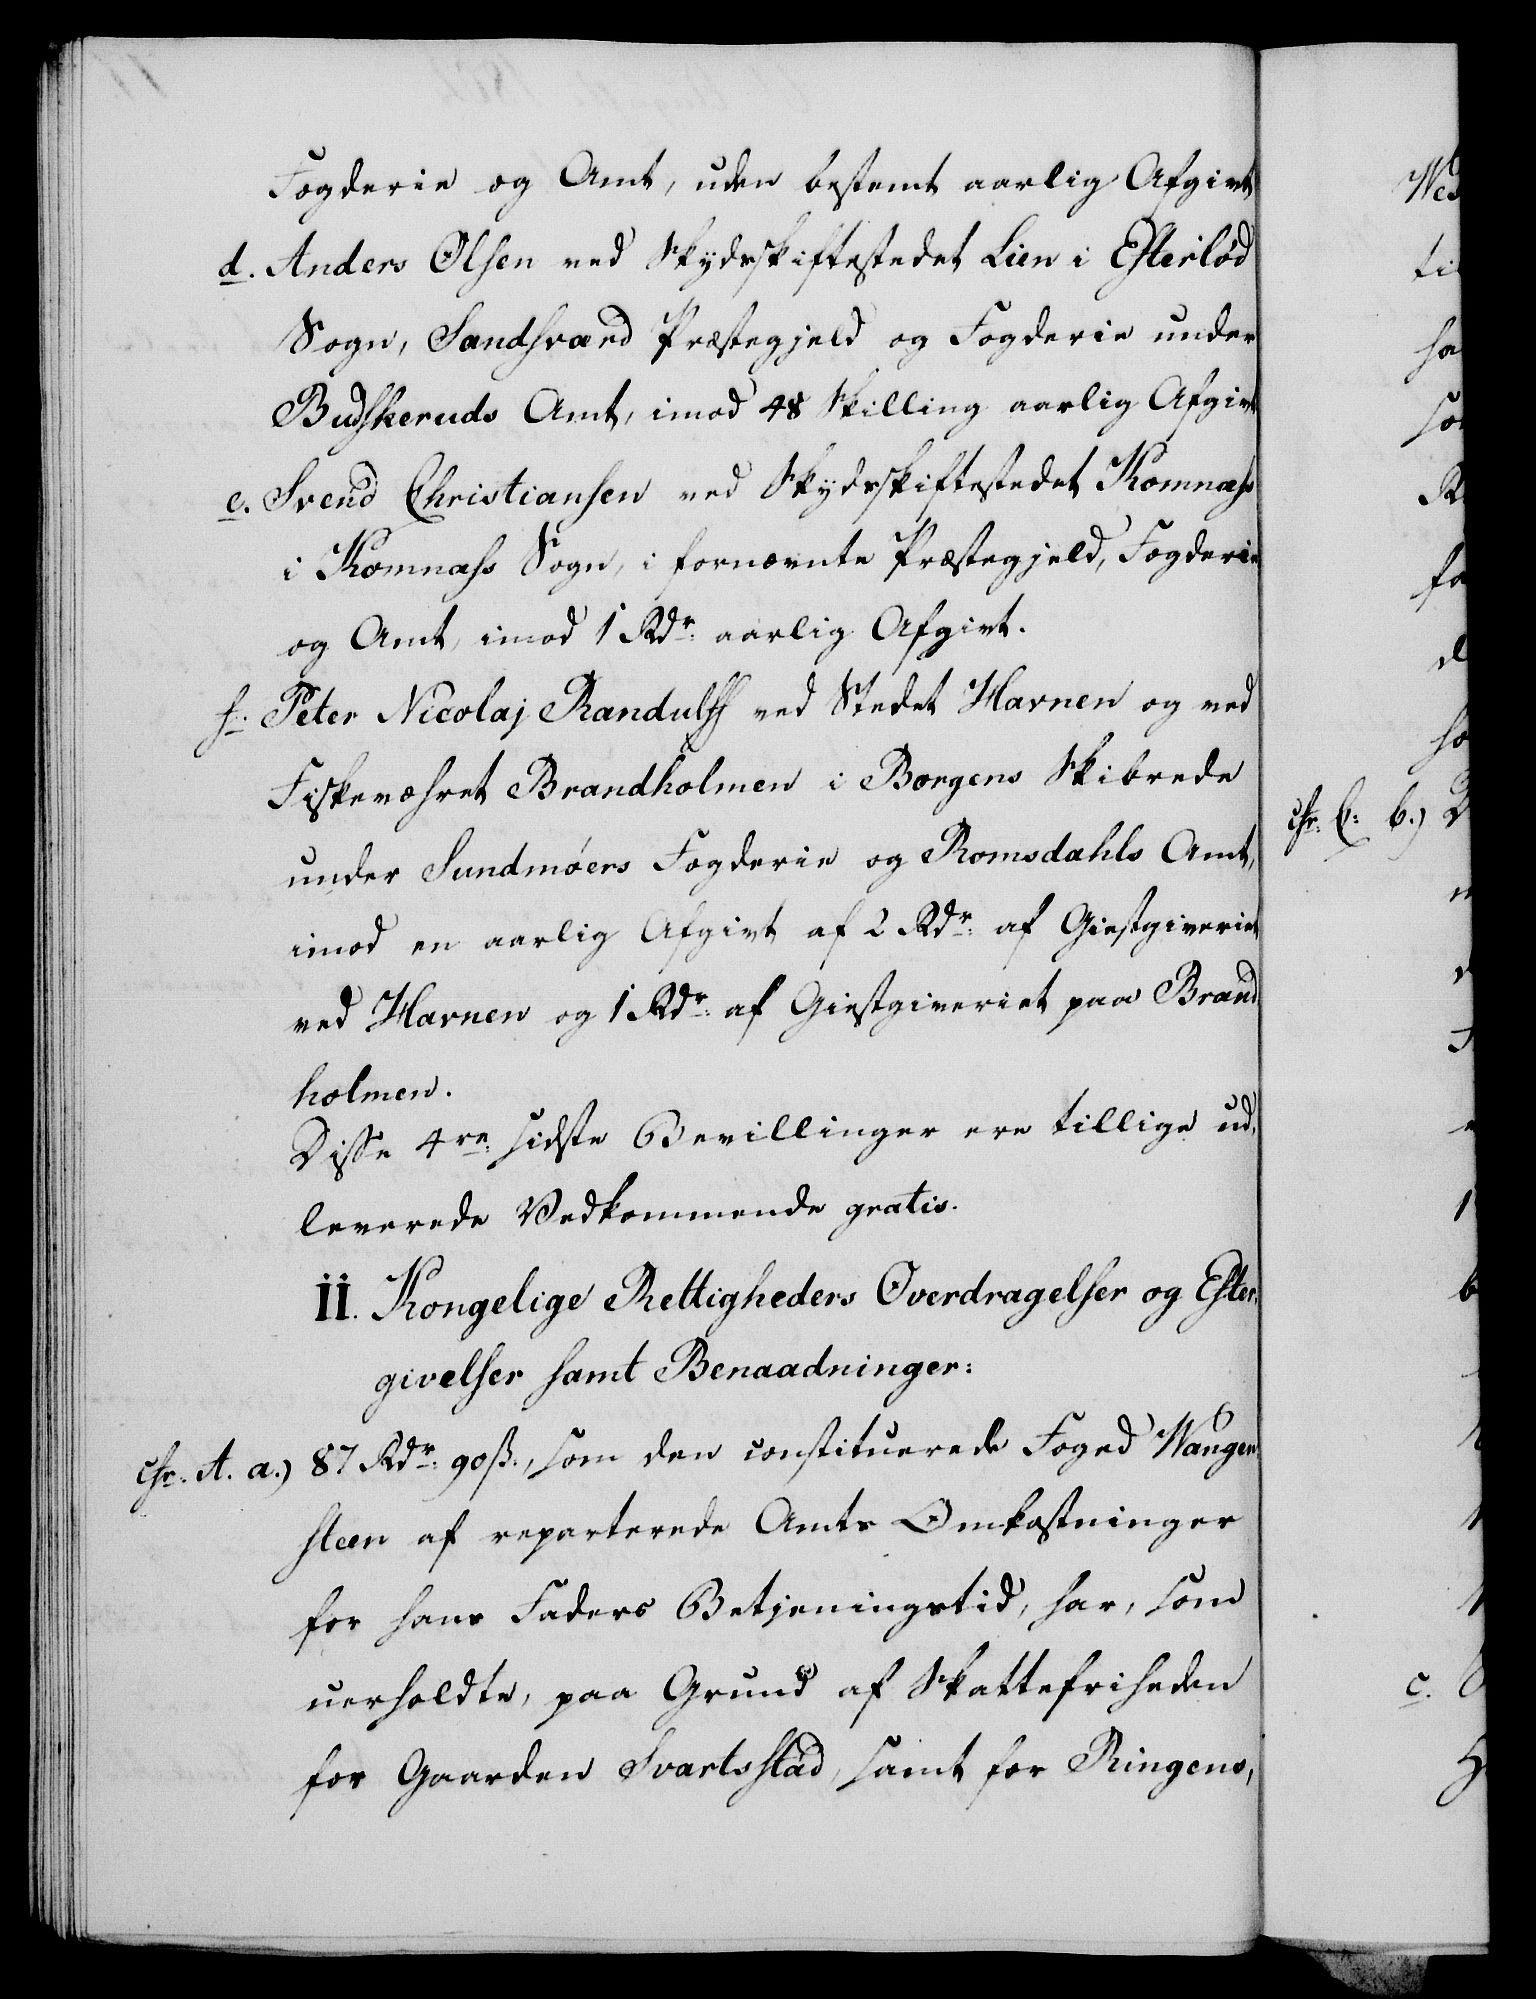 Fogderie og Amt, uden bestemt aarlig Afgivt
d. Anders Olsen ved Skydsskiftestedet Lien i Efterlöd
Sogn, Sandsværd Præstegjeld og Fogderie under
Budskeruds Amt, imod 48 Skilling aarlig Afgivt
e. Svend Christiansen ved Skydsskiftestedet Komnæs
i Komnæs Sogn, i fornævnte Præstegjeld, Fogderie
og Amt, imod 1 Rdr: aarlig Afgivt.
f. Peter Nicolaj Randulff ved Stedet Havnen og ved
Fiskeværet Brandholmen i Borgens Skibrede
under Sundmöers Fogderie og Romsdahls Amt,
imod en aarlig Afgivt af 2 Rdr: af Giestgiveriet
ved Havnen og 1 Rdr: af Giestgiveriet paa Brand
holmen.
Disse 4re: sidste Bevillinger ere tillige ud,
leverede Vedkommende gratis.
II. Kongelige Rettigheders Overdragelser og Efter,
givelser samt Benaadninger:
chr. A. a.) 87 Rdr: 90 ß., som den constituerede Foged Wangen
steen af reparterede Amts Omkostninger
for hans Faders Betjeningstid, har, som
uerholdte, paa Grund af Skattefriheden
for Gaarden Svartsstad, samt for Ringens,
Wed
ti
ha
so
R
fo
d
ho
chr. C: b.)
c.